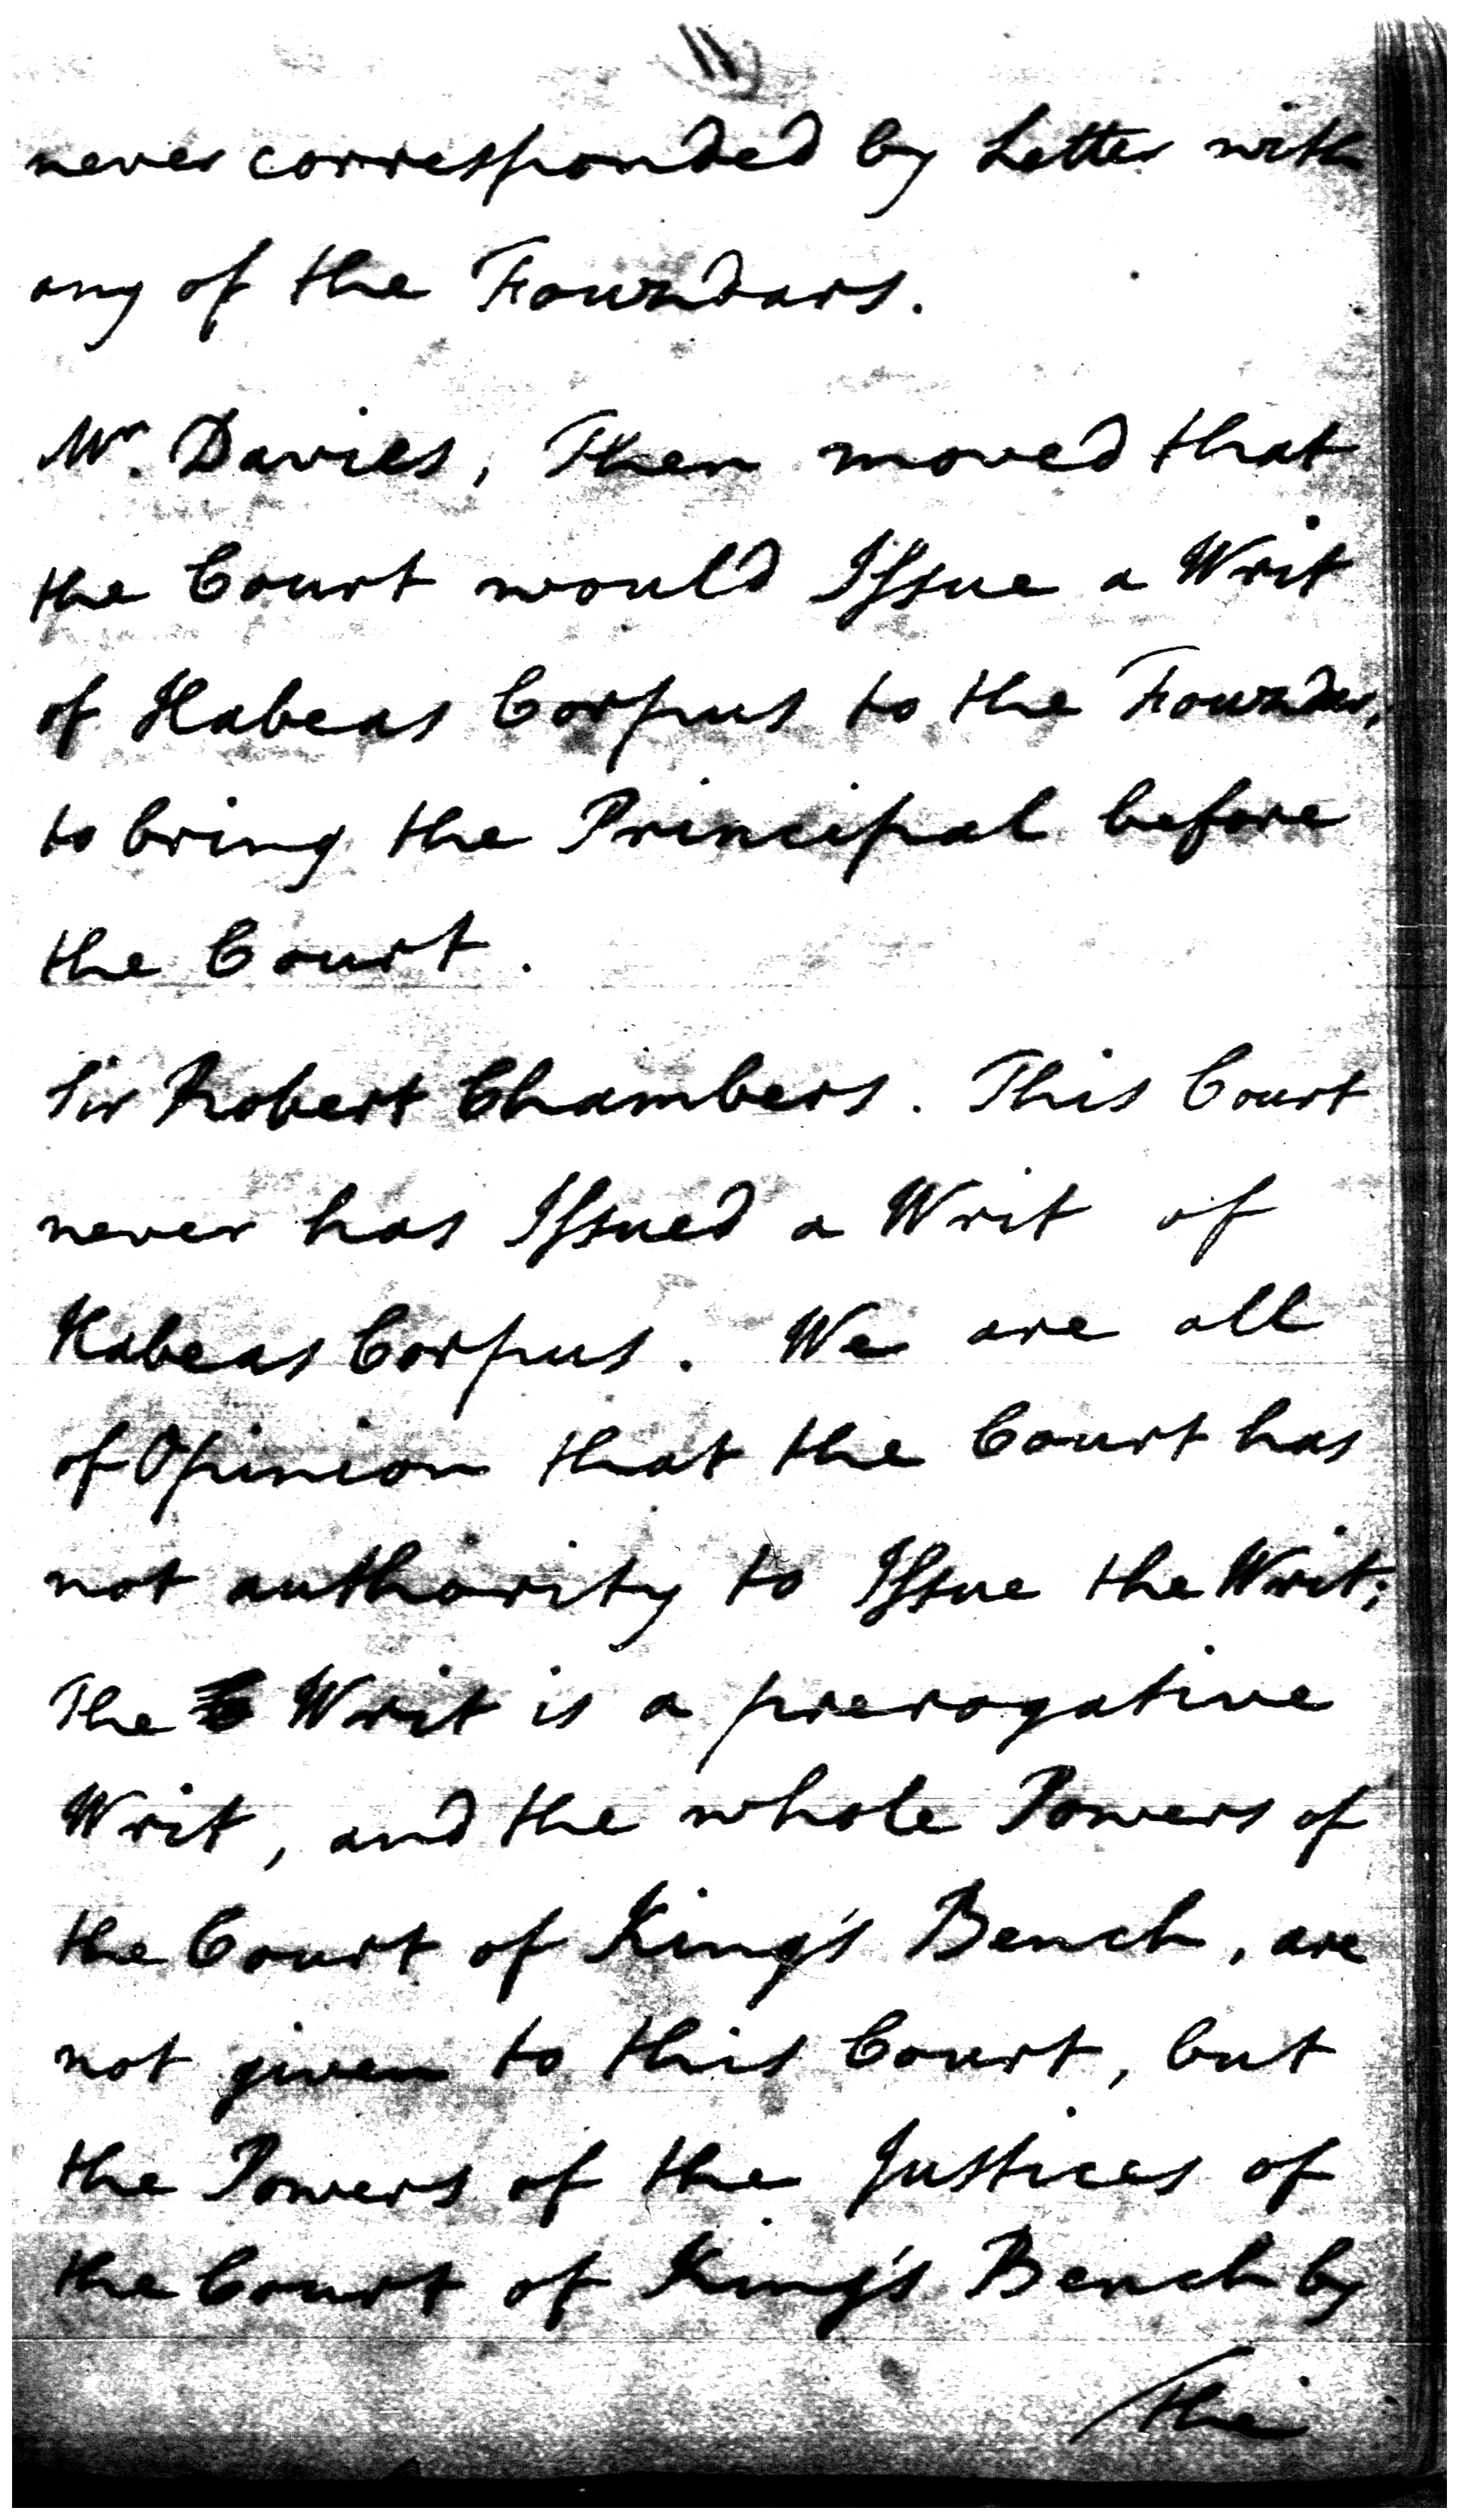 11
never corresponded by Letter with
any of the Fouzdars.
Mr. Davies, Then moved that
the Court would Issue a Writ
of Habeas Corpus to the Fouzdar,
to bring the Principal before
the Court.
Sir Robert Chambers. This Court
never has Issued a Writ of
Habeas Corpus. We are all
of Opinion that the Court has
not authority to Issue the Writ;
The Writ is a prerogative
Writ, and the whole Powers of
the Court of King's Bench, are
not given to this Court, but
the Powers of the Justices of
the Court of King's Bench by
The